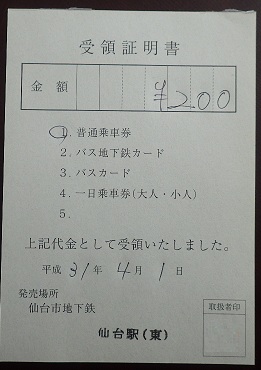 受領証明書
金額 ¥200
1. 普通乗車券
2. バス地下鉄カード
3. バスカード
4. 一日乗車券(大人・小人)
5.
上記代金として受領いたしました。
平成 31年 4月 1日
発売場所
仙台市地下鉄
取扱者印
仙台駅(東)